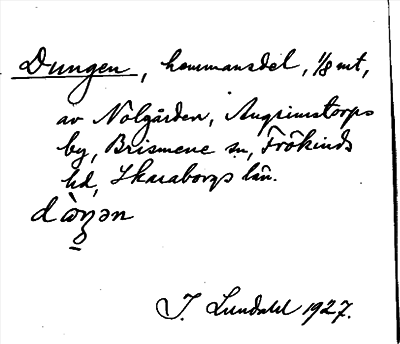 Dungen, hemmansdel, 1/8 mt,
av Nolgården, Angrimstorps
by, Brismene sn, Frökinds
hd, Skaraborgs län.
dὼŋən
J. Lundahl 1927.